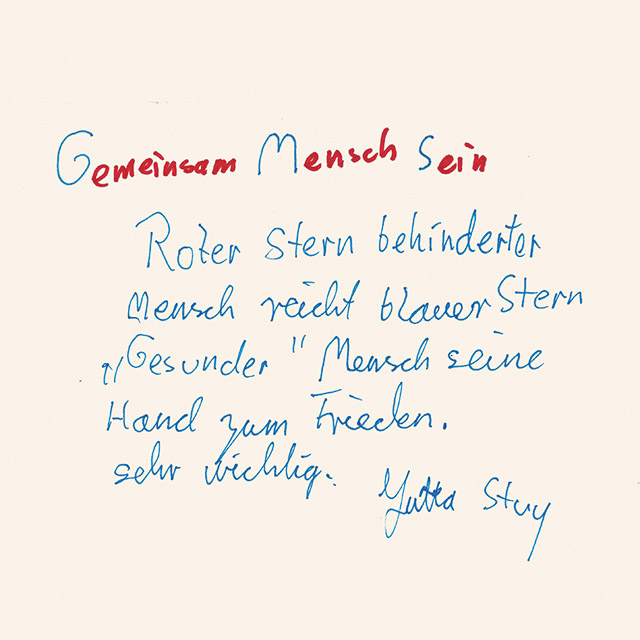 Gemeinsam Mensch Sein
Roter Stern behinderter
Mensch reicht blauer Stern
„Gesunder" Mensch seine
Hand zum Frieden.
sehr wichtig.
Jutta Stuy